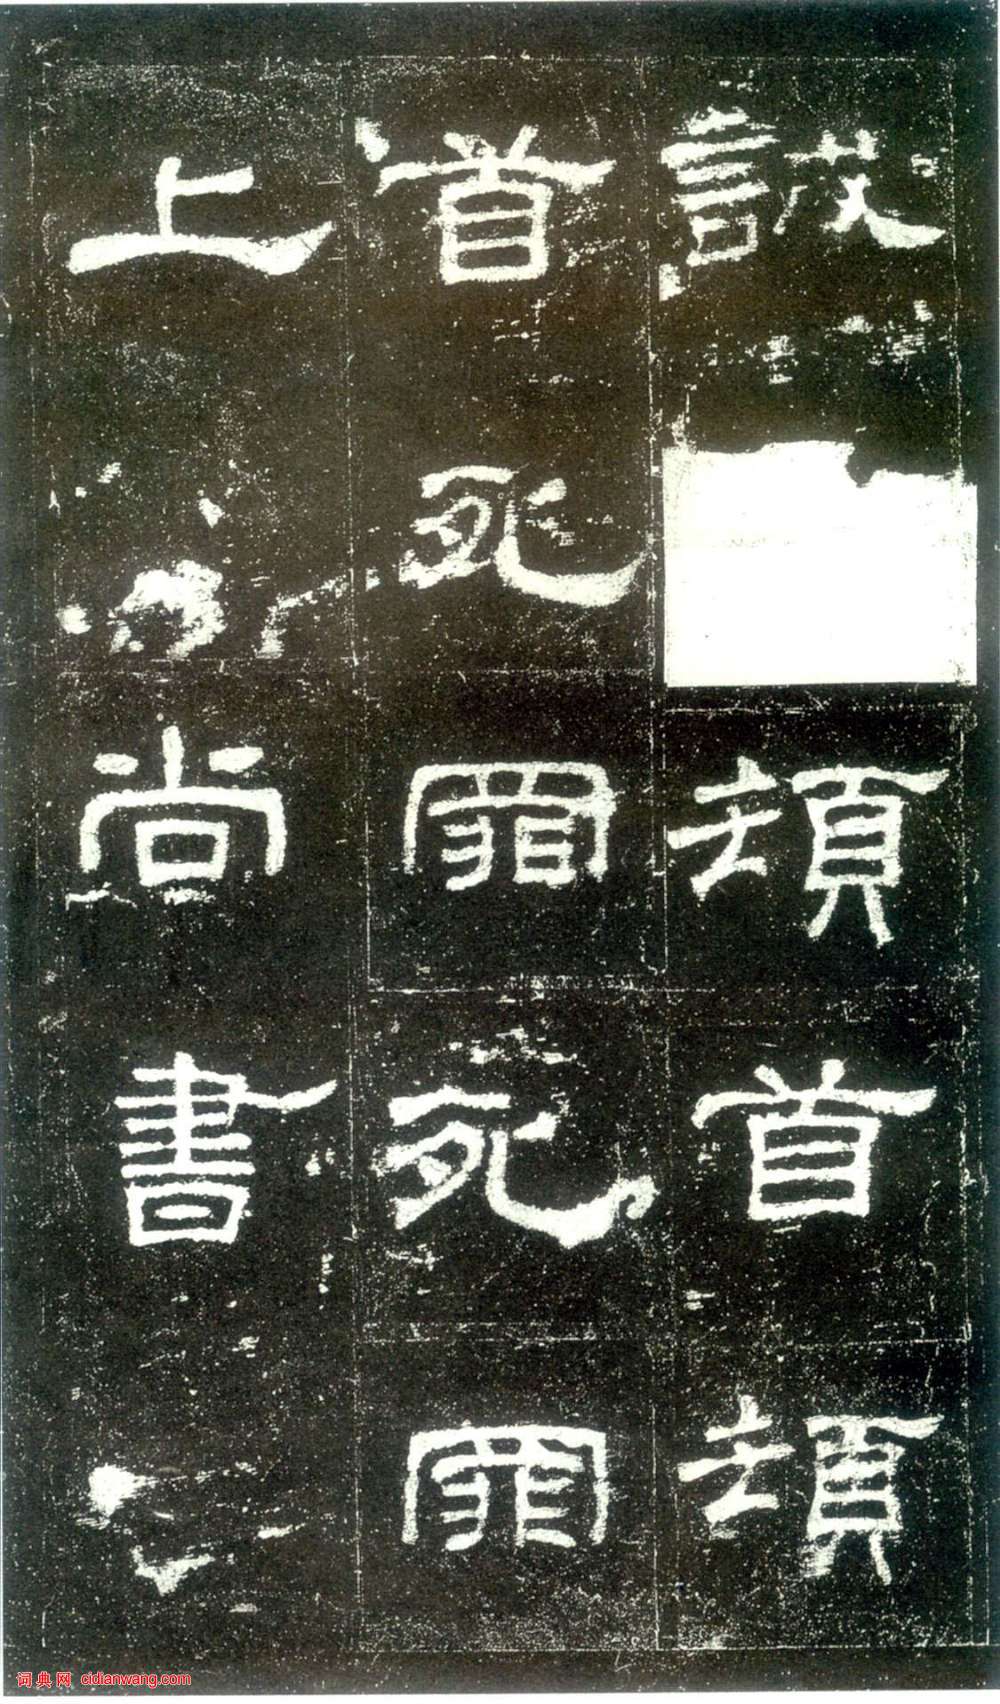 誠頓首頓
首死罪死罪
上尚書
词典网 cidianwang.com